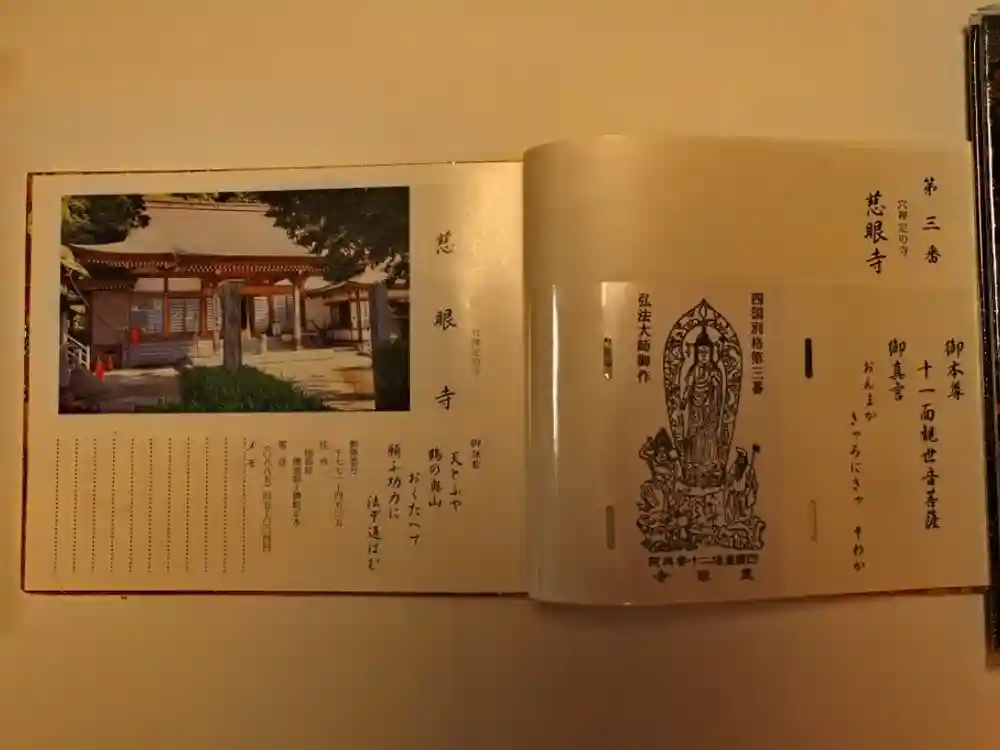 第三番
穴禅定の寺
慈眼寺
御本尊
十一面観世音菩薩
御真言
おんまか
きゃろにきゃ そわか
四国別格第三番
弘法大師御作
四國靈場二十番奥院
慈眼寺
慈眼寺
穴禅定の寺
御詠歌
天とふや
鶴の奥山
おくたへて
願ふ功力に
法や通はむ
郵便番号
住所
徳島県
電話
メモ